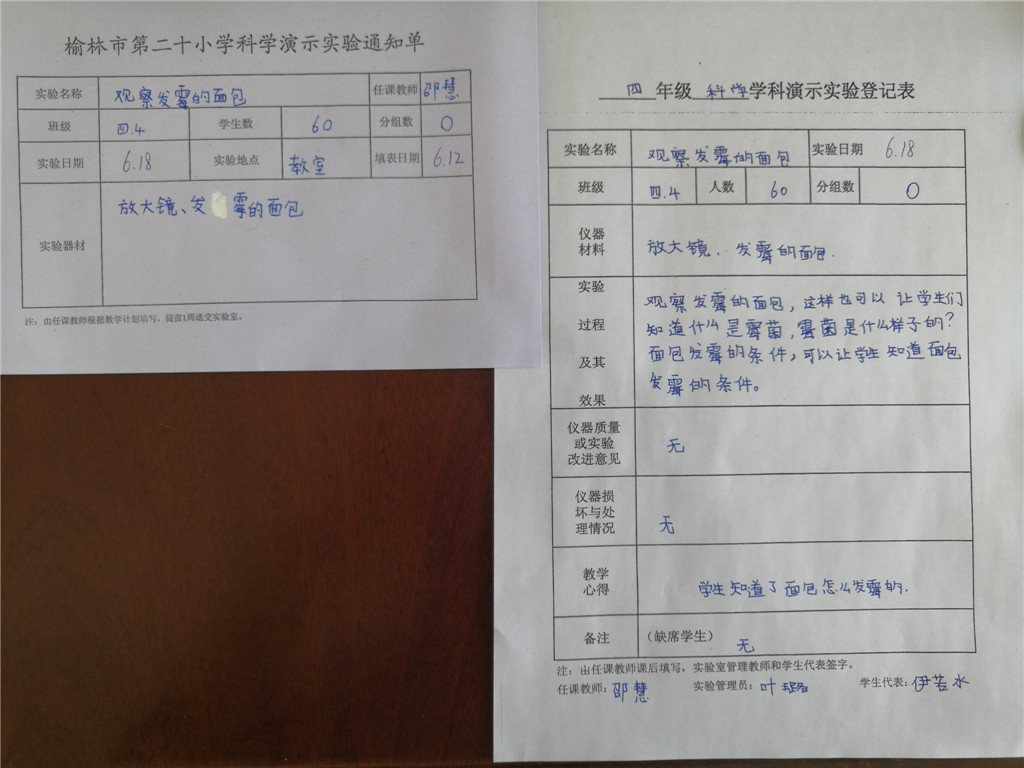 榆林市第二十小学科学演示实验通知单
实验名称 观察发霉的面包 任课教师 邵慧
班级 四.4 学生数 60 分组数 0
实验日期 6.18 实验地点 教室 填表日期 6.12
实验器材 放大镜、发霉的面包
注：由任课教师根据教学计划填写，提前1周送交实验室。
四年级 科学学科演示实验登记表
实验名称 观察发霉的面包 实验日期 6.18
班级 四.4 人数 60 分组数 0
仪器
材料 放大镜、发霉的面包.
实验
过程
及其
效果
观察发霉的面包，这样也可以让学生们
知道什么是霉菌，霉菌是什么样子的？
面包发霉的条件，可以让学生知道面包
发霉的条件。
仪器质量
或实验
改进意见
无
仪器损
坏与处
理情况
无
教学
心得
学生知道了面包怎么发霉的.
备注 （缺席学生） 无
注：由任课教师课后填写，实验室管理教师和学生代表签字。
任课教师：邵慧 实验管理员：叶 学生代表：伊若水